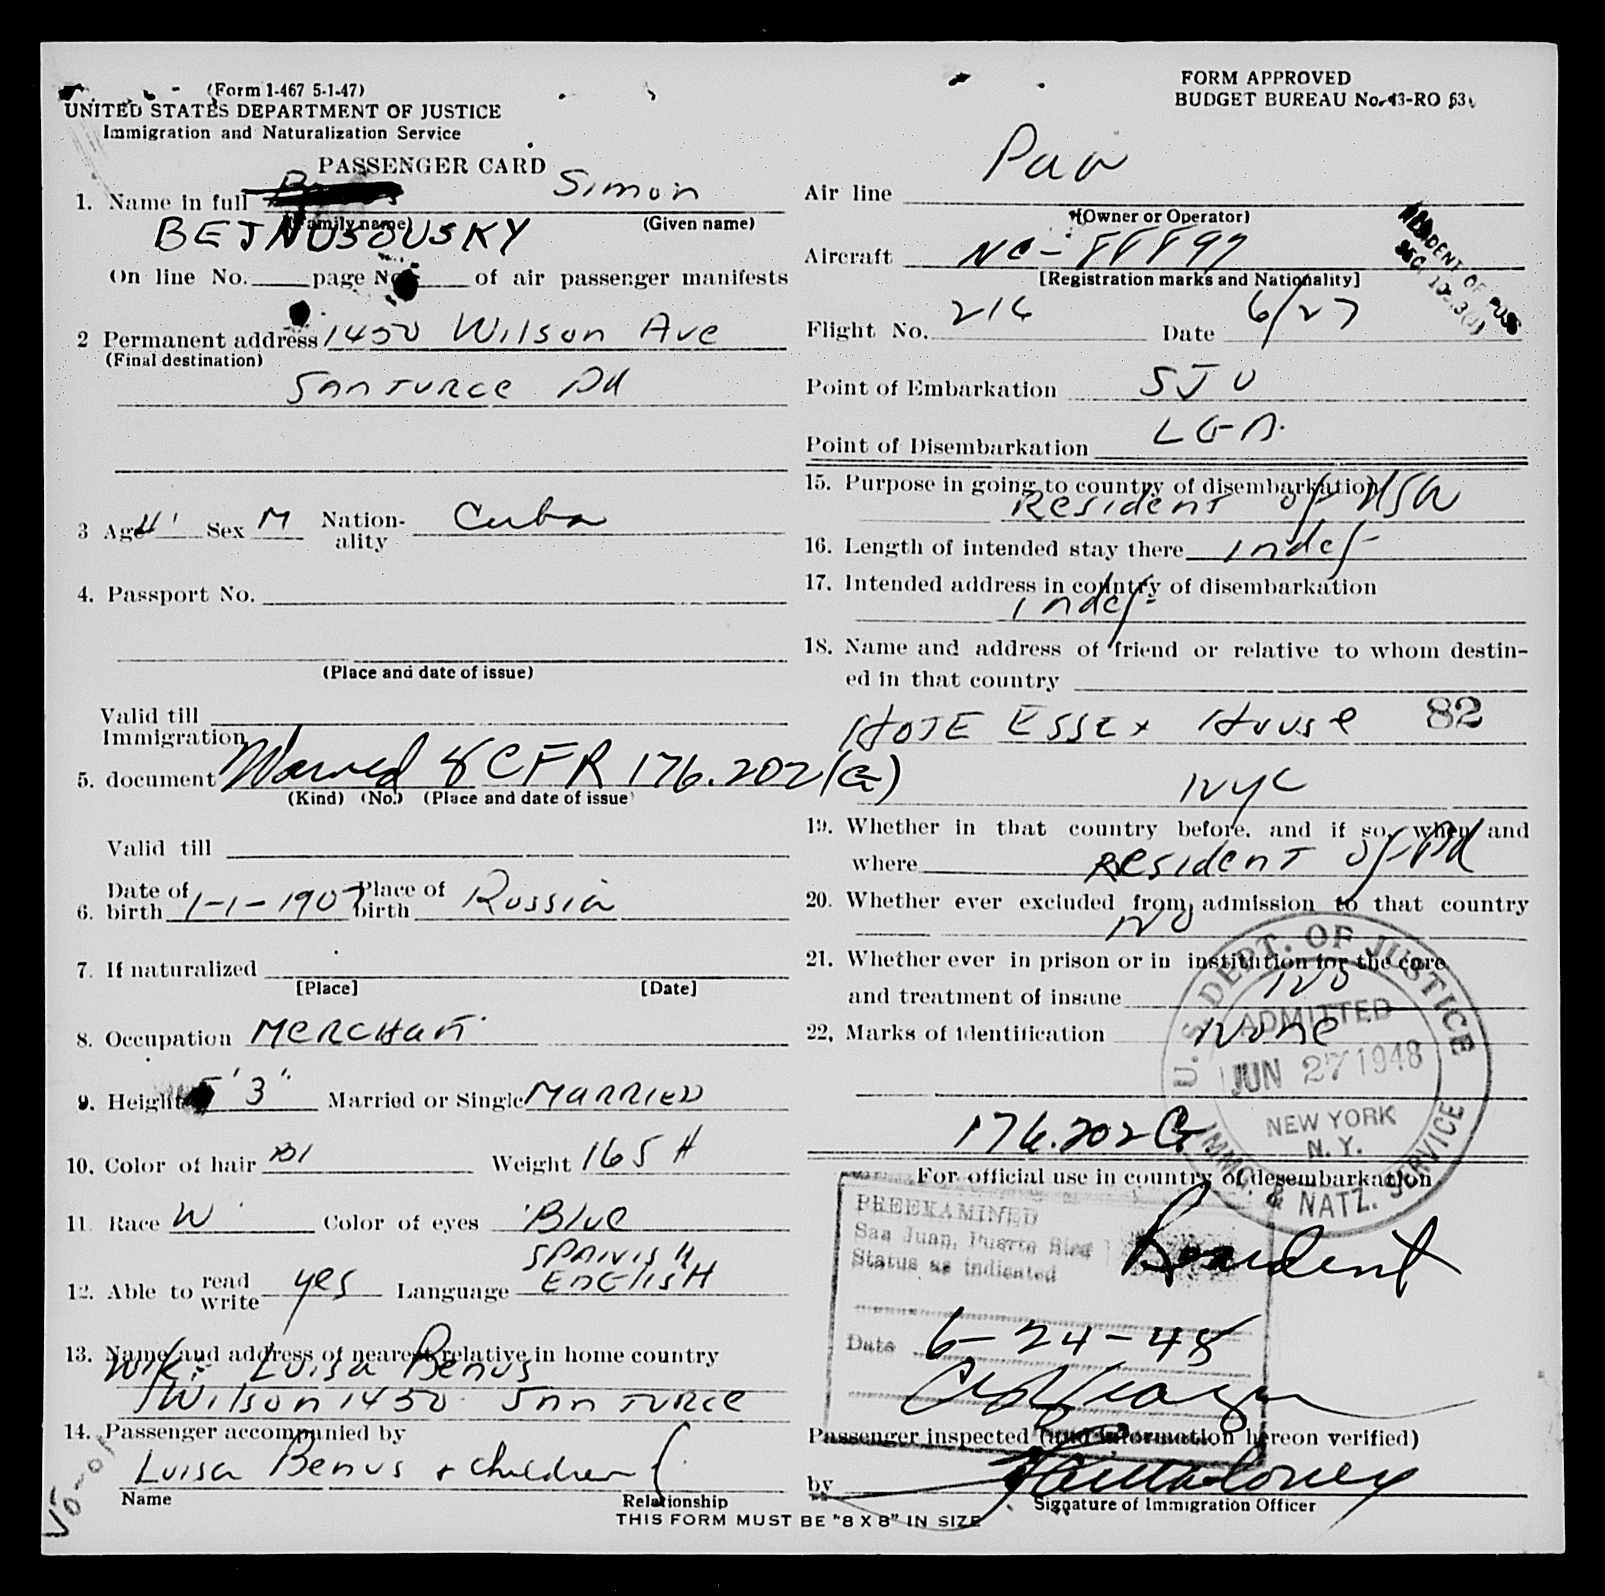 (Form I-467 5-1-47)
UNITED STATES DEPARTMENT OF JUSTICE
Immigration and Naturalization Service
PASSENGER CARD
1. Name in full Simon
(Family name) (Given name)
BEJNUSOUSKY
On line No. page No. of air passenger manifests
2 Permanent address 1450 Wilson Ave
(Final destination)
Santurce
3 Age Sex M Nation-ality Cuba
4. Passport No.
(Place and date of issue)
Valid till
Immigration
5. document Waived 8 CFR 176.202(G)
(Kind) (No.) (Place and date of issue)
Valid till
6. Date of birth 1-1-1907 Place of birth Russia
7. If naturalized
[Place] [Date]
8. Occupation Merchant
9. Height 5'3" Married or Single Married
10. Color of hair Bl Weight 165 #
11. Race W Color of eyes Blue
SPANISH
12. Able to read write yes Language ENGLISH
13. Name and address of nearest relative in home country
Wife: Luisa Benus
Wilson 1450 Santurce
14. Passenger accompanied by
Luisa Benus + children
Name Relationship
THIS FORM MUST BE "8 X 8" IN SIZE
FORM APPROVED
BUDGET BUREAU No. 43-RO
Air line Paa
(Owner or Operator)
Aircraft NC-88899
[Registration marks and Nationality]
Flight No. 216 Date 6/27
Point of Embarkation SJU
Point of Disembarkation LGA.
15. Purpose in going to country of disembarkation
Resident of USA
16. Length of intended stay there indef
17. Intended address in country of disembarkation
indef
18. Name and address of friend or relative to whom destin-
ed in that country
Essex House 82
NYC
19. Whether in that country before, and if so, when and
where Resident of
20. Whether ever excluded from admission to that country
No
21. Whether ever in prison or in institution for the care
and treatment of insane No
22. Marks of identification None
176.202 G
U.S. DEPT. OF JUSTICE
ADMITTED
JUN 27 1948
NEW YORK
N. Y.
IMMG. & NATZ. SERVICE
For official use in country of desembarkation
PREEXAMINED
San Juan, Puerto Rico
Status as indicated
Resident
Date 6-24-48
Passenger inspected (and information hereon verified)
by
Signature of Immigration Officer